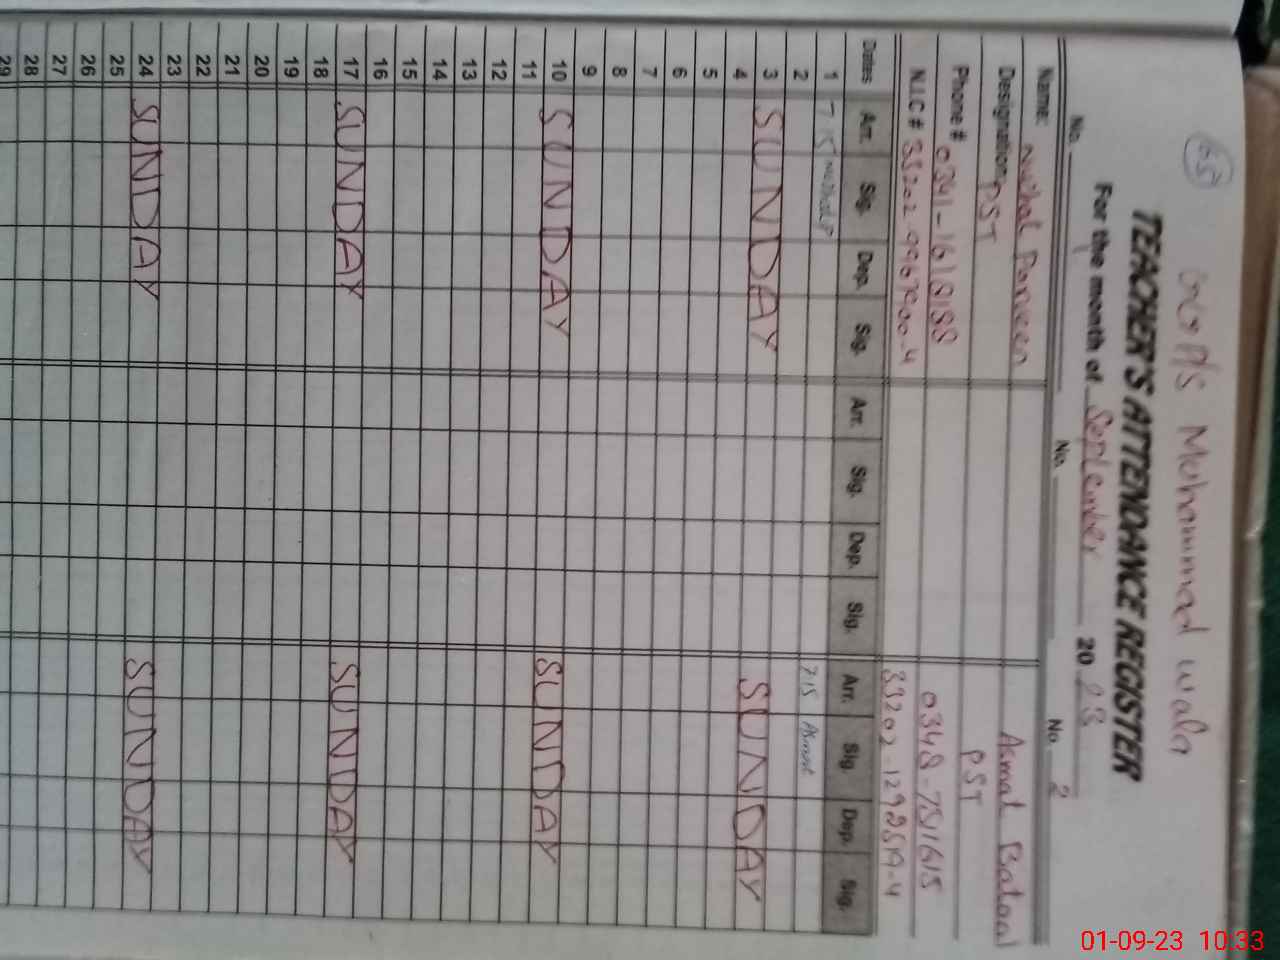 65
GGP/S Mohammad wala
TEACHER'S ATTENDANCE REGISTER
For the month of September 2023
No. No. No. 2
Name: Nuzhat Parveen Asmat Batool
Designation PST PST
Phone # 0341-1618188 0348-7511615
N.I.C # 33202-9967900-4 33202-1292519-4
Dates Arr. Sig. Dep. Sig. Arr. Sig. Dep. Sig. Arr. Sig. Dep. Sig.
1 7 15 Nuzhat P 715 Asmat
2
3 SUNDAY SUNDAY
4
5
6
7
8
9
10 SUNDAY SUNDAY
11
12
13
14
15
16
17 SUNDAY SUNDAY
18
19
20
21
22
23
24 SUNDAY SUNDAY
25
26
27
28
29
01-09-23 10:33